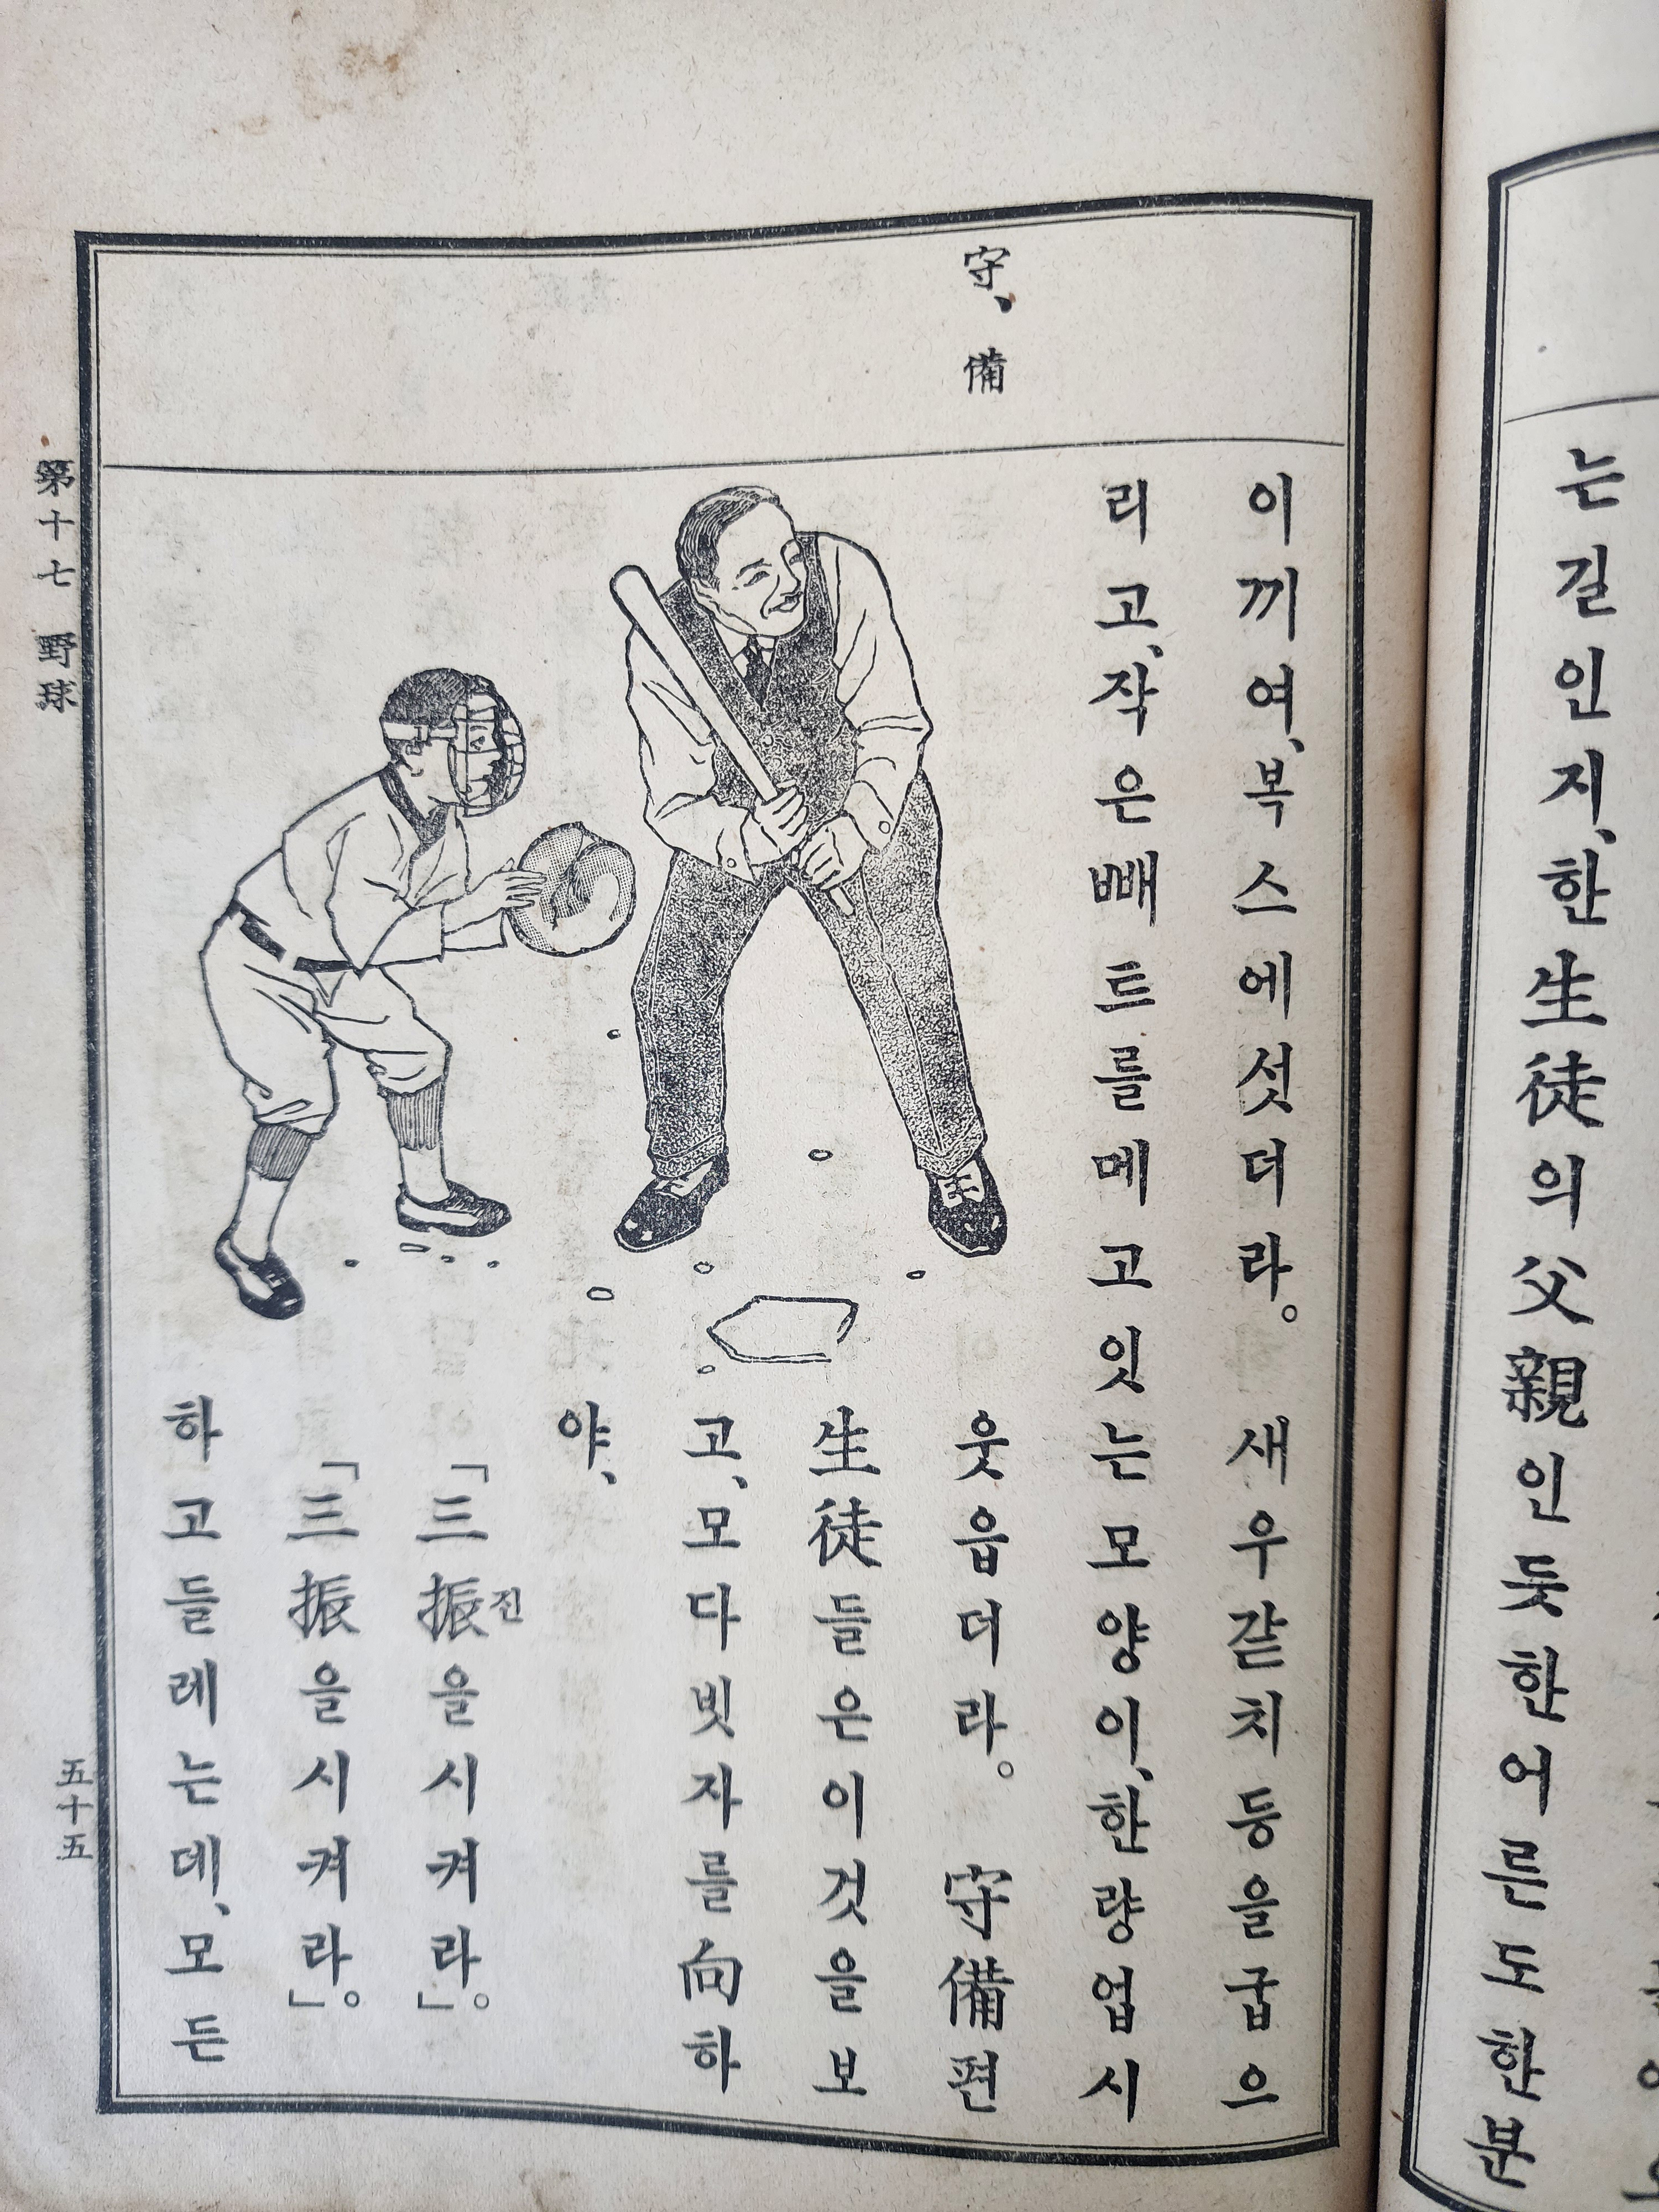 는길인지、한生徒의父親인듯한어른도한분
守、備
이끼여、복스에섯더라。 새우갇치등을굽으
리고、작은빼트를메고잇는모양이、한량업시
웃읍더라。 守備편
生徒들은이것을보
고、모다빗자를向하
야、
「三振을시켜라」。
진
「三振을시켜라」。
하고들레는데、모든
第十七 野球
五十五